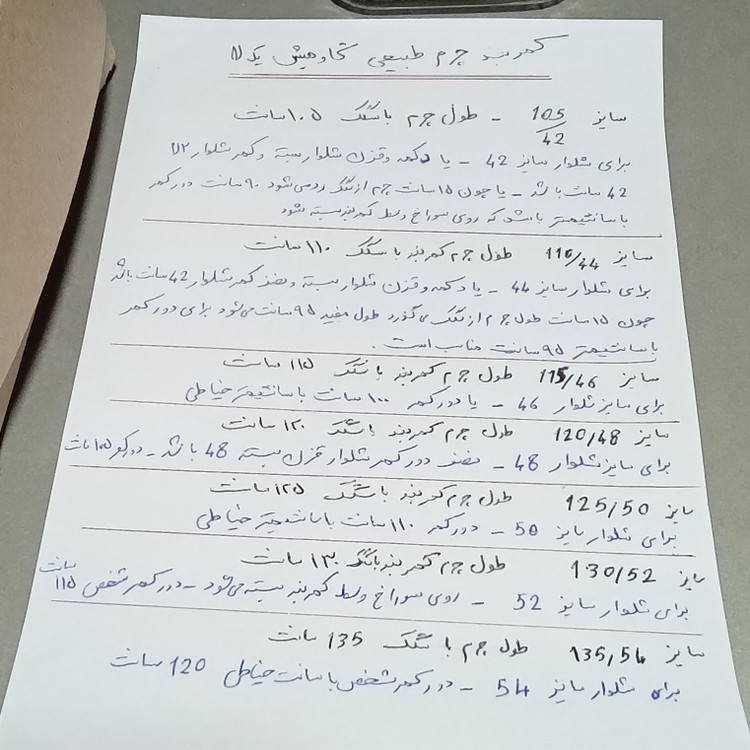 کمربند چرم طبیعی گاومیش یک لا
سایز 105/42 - طول چرم با سگک ۱۰۵ سانت
برای شلوار سایز 42 - یا دکمه و قزن شلوار بسته و کمر شلوار
42 سانت باشد - یا چون ۱۵ سانت چرم از سگک رد می شود ۹۰ سانت دور کمر
با سانتیمتر باشد که روی سوراخ وسط کمربند بسته شود
سایز 110/44 طول چرم کمربند با سگک ۱۱۰ سانت
برای شلوار سایز 44 - یا دکمه و قزن شلوار بسته و نصف کمر شلوار 42 سانت باشد
چون ۱۵ سانت طول چرم از سگک می گذرد طول مفید ۹۵ سانت می شود برای دور کمر
با سانتیمتر ۹۵ سانت مناسب است .
سایز 115/46 طول چرم کمربند با سگک ۱۱۵ سانت
برای سایز شلوار 46 - یا دور کمر ۱۰۰ سانت با سانتیمتر خیاطی
سایز 120/48 طول چرم کمربند با سگک ۱۲۰ سانت
برای سایز شلوار 48 - نصف دور کمر شلوار قزن بسته 48 باشد - دور کمر ۱۰۵ سانت
سایز 125/50 طول چرم کمربند با سگک ۱۲۵ سانت
برای شلوار سایز 50 - دور کمر ۱۱۰ سانت با سانتیمتر خیاطی
سایز 130/52 طول چرم کمربند با سگک ۱۳۰ سانت
برای شلوار سایز 52 - روی سوراخ وسط کمربند بسته می شود - دور کمر شخص ۱۱۵ سانت
سایز 135/54 طول چرم با سگک 135 سانت
برای شلوار سایز 54 - دور کمر شخص با سانت خیاطی 120 سانت